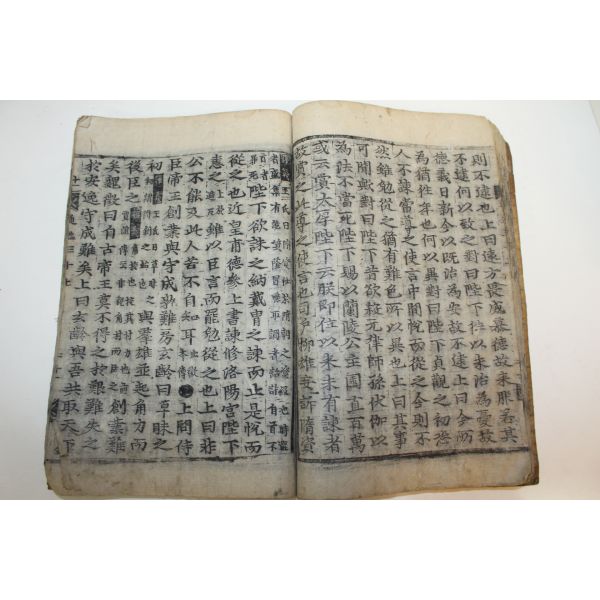 則不逮也上曰遠方畏威慕德故來服若其
不逮何以致之對曰陛下往以未治爲憂故
德義日新今以旣治爲安故不逮上曰今所
爲猶往年也何以異對曰陛下貞觀之初恐
人不諫常導之使言中間悅而從之今則不
然雖勉從之猶有難色所以異也上曰其事
可聞歟對曰陛下昔欲殺元律師孫伏伽以
爲法不當死陛下賜以蘭陵公主園直百萬
或云賞太厚陛下云朕卽位以來未有諫者
故賞之此導之使言也司戶柳雄妄訴隋資
陛下欲誅之納戴胄之諫而止是悅而
從之也近皇甫德參上書諫修洛陽宮陛下
恚之雖以臣言而罷勉從之也上曰非
公不能及此人苦不自知耳 上問侍
臣帝王創業與守成孰難房玄齡曰草昧之
初 與羣雄並起角力而
後臣之 創業難
矣魏徵曰自古帝王莫不得之於艱難失之
於安逸守成難矣上曰玄齡與吾共取天下